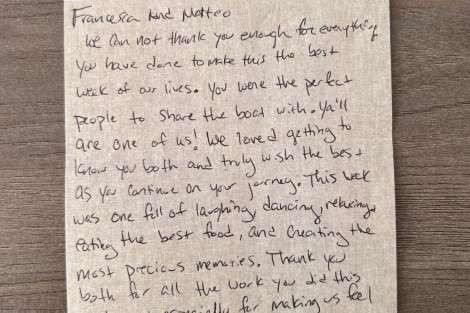 Francesca And Matteo
We can not thank you enough for everything
you have done to make this the best
week of our lives. You were the perfect
people to share the boat with. Ya'll
are one of us! We loved getting to
know you both and truly wish the best
as you continue on your journey. This week
was one full of laughing, dancing, relaxing,
eating the best food, and creating the
most precious memories. Thank you
both for all the work you did this
especially for making us feel